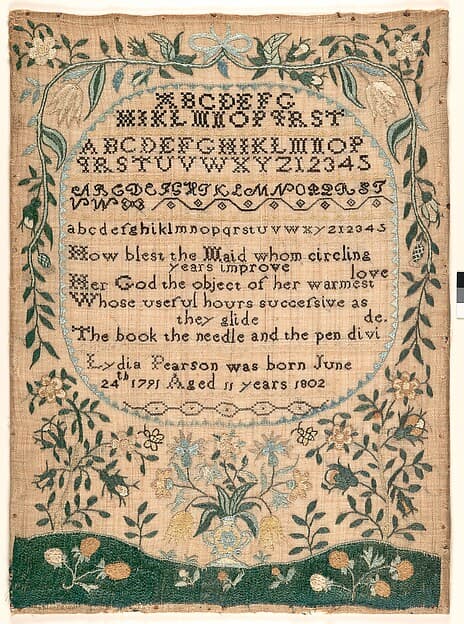 ABCDEFG
HIKLMNOPQRST
ABCDEFGHIKLMNOP
QRSTUVWXYZ12345
ABCDEFGHIKLMNOPQRST
VW
abcdefghiklmnopqrstuvwxyz12345
How blest the Maid whom circling
years improve
Her God the object of her warmest
love
Whose useful hours succeſsive as
they glide
The book the needle and the pen divi
de.
Lydia Pearson was born June
24th 1791 Aged 11 years 1802